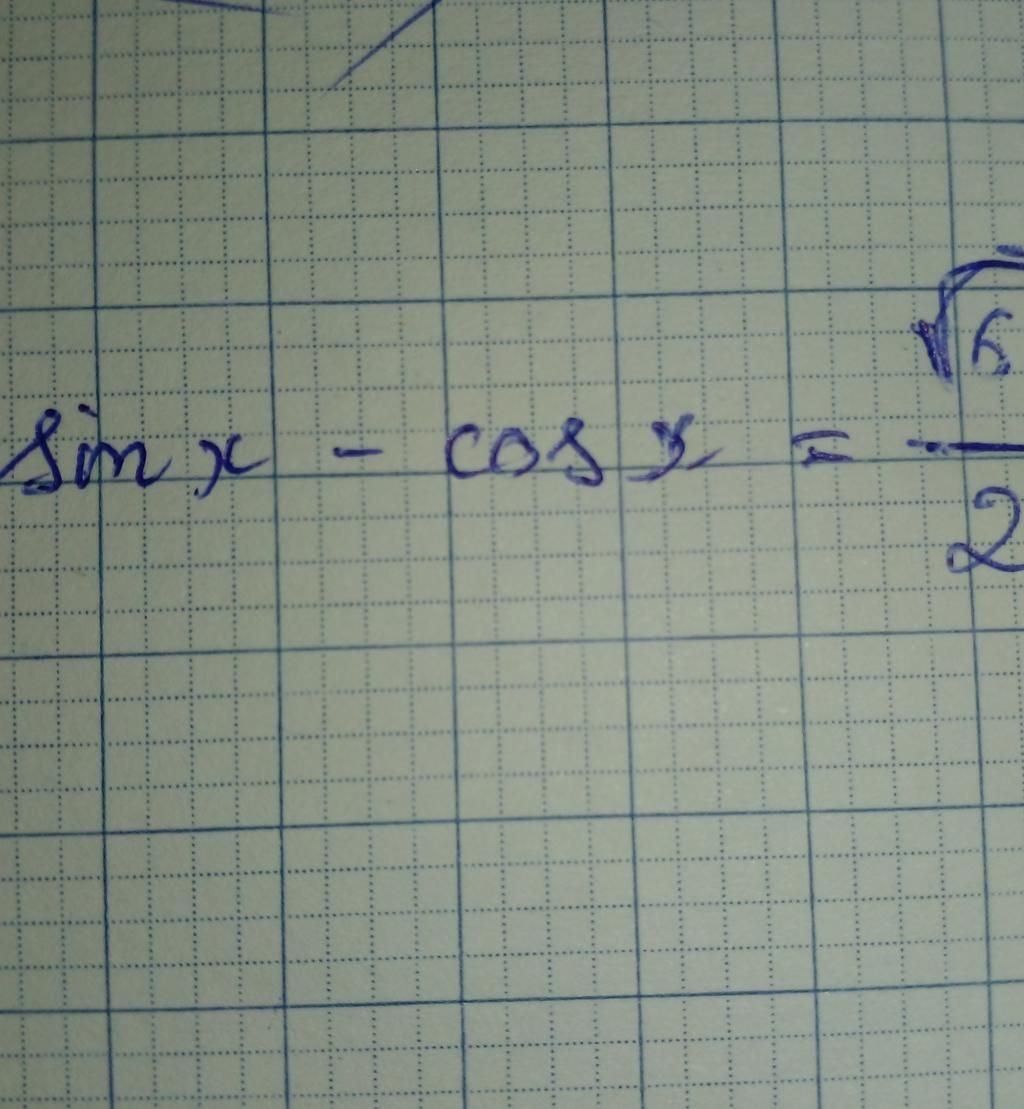 sin x - cos x = √6/2